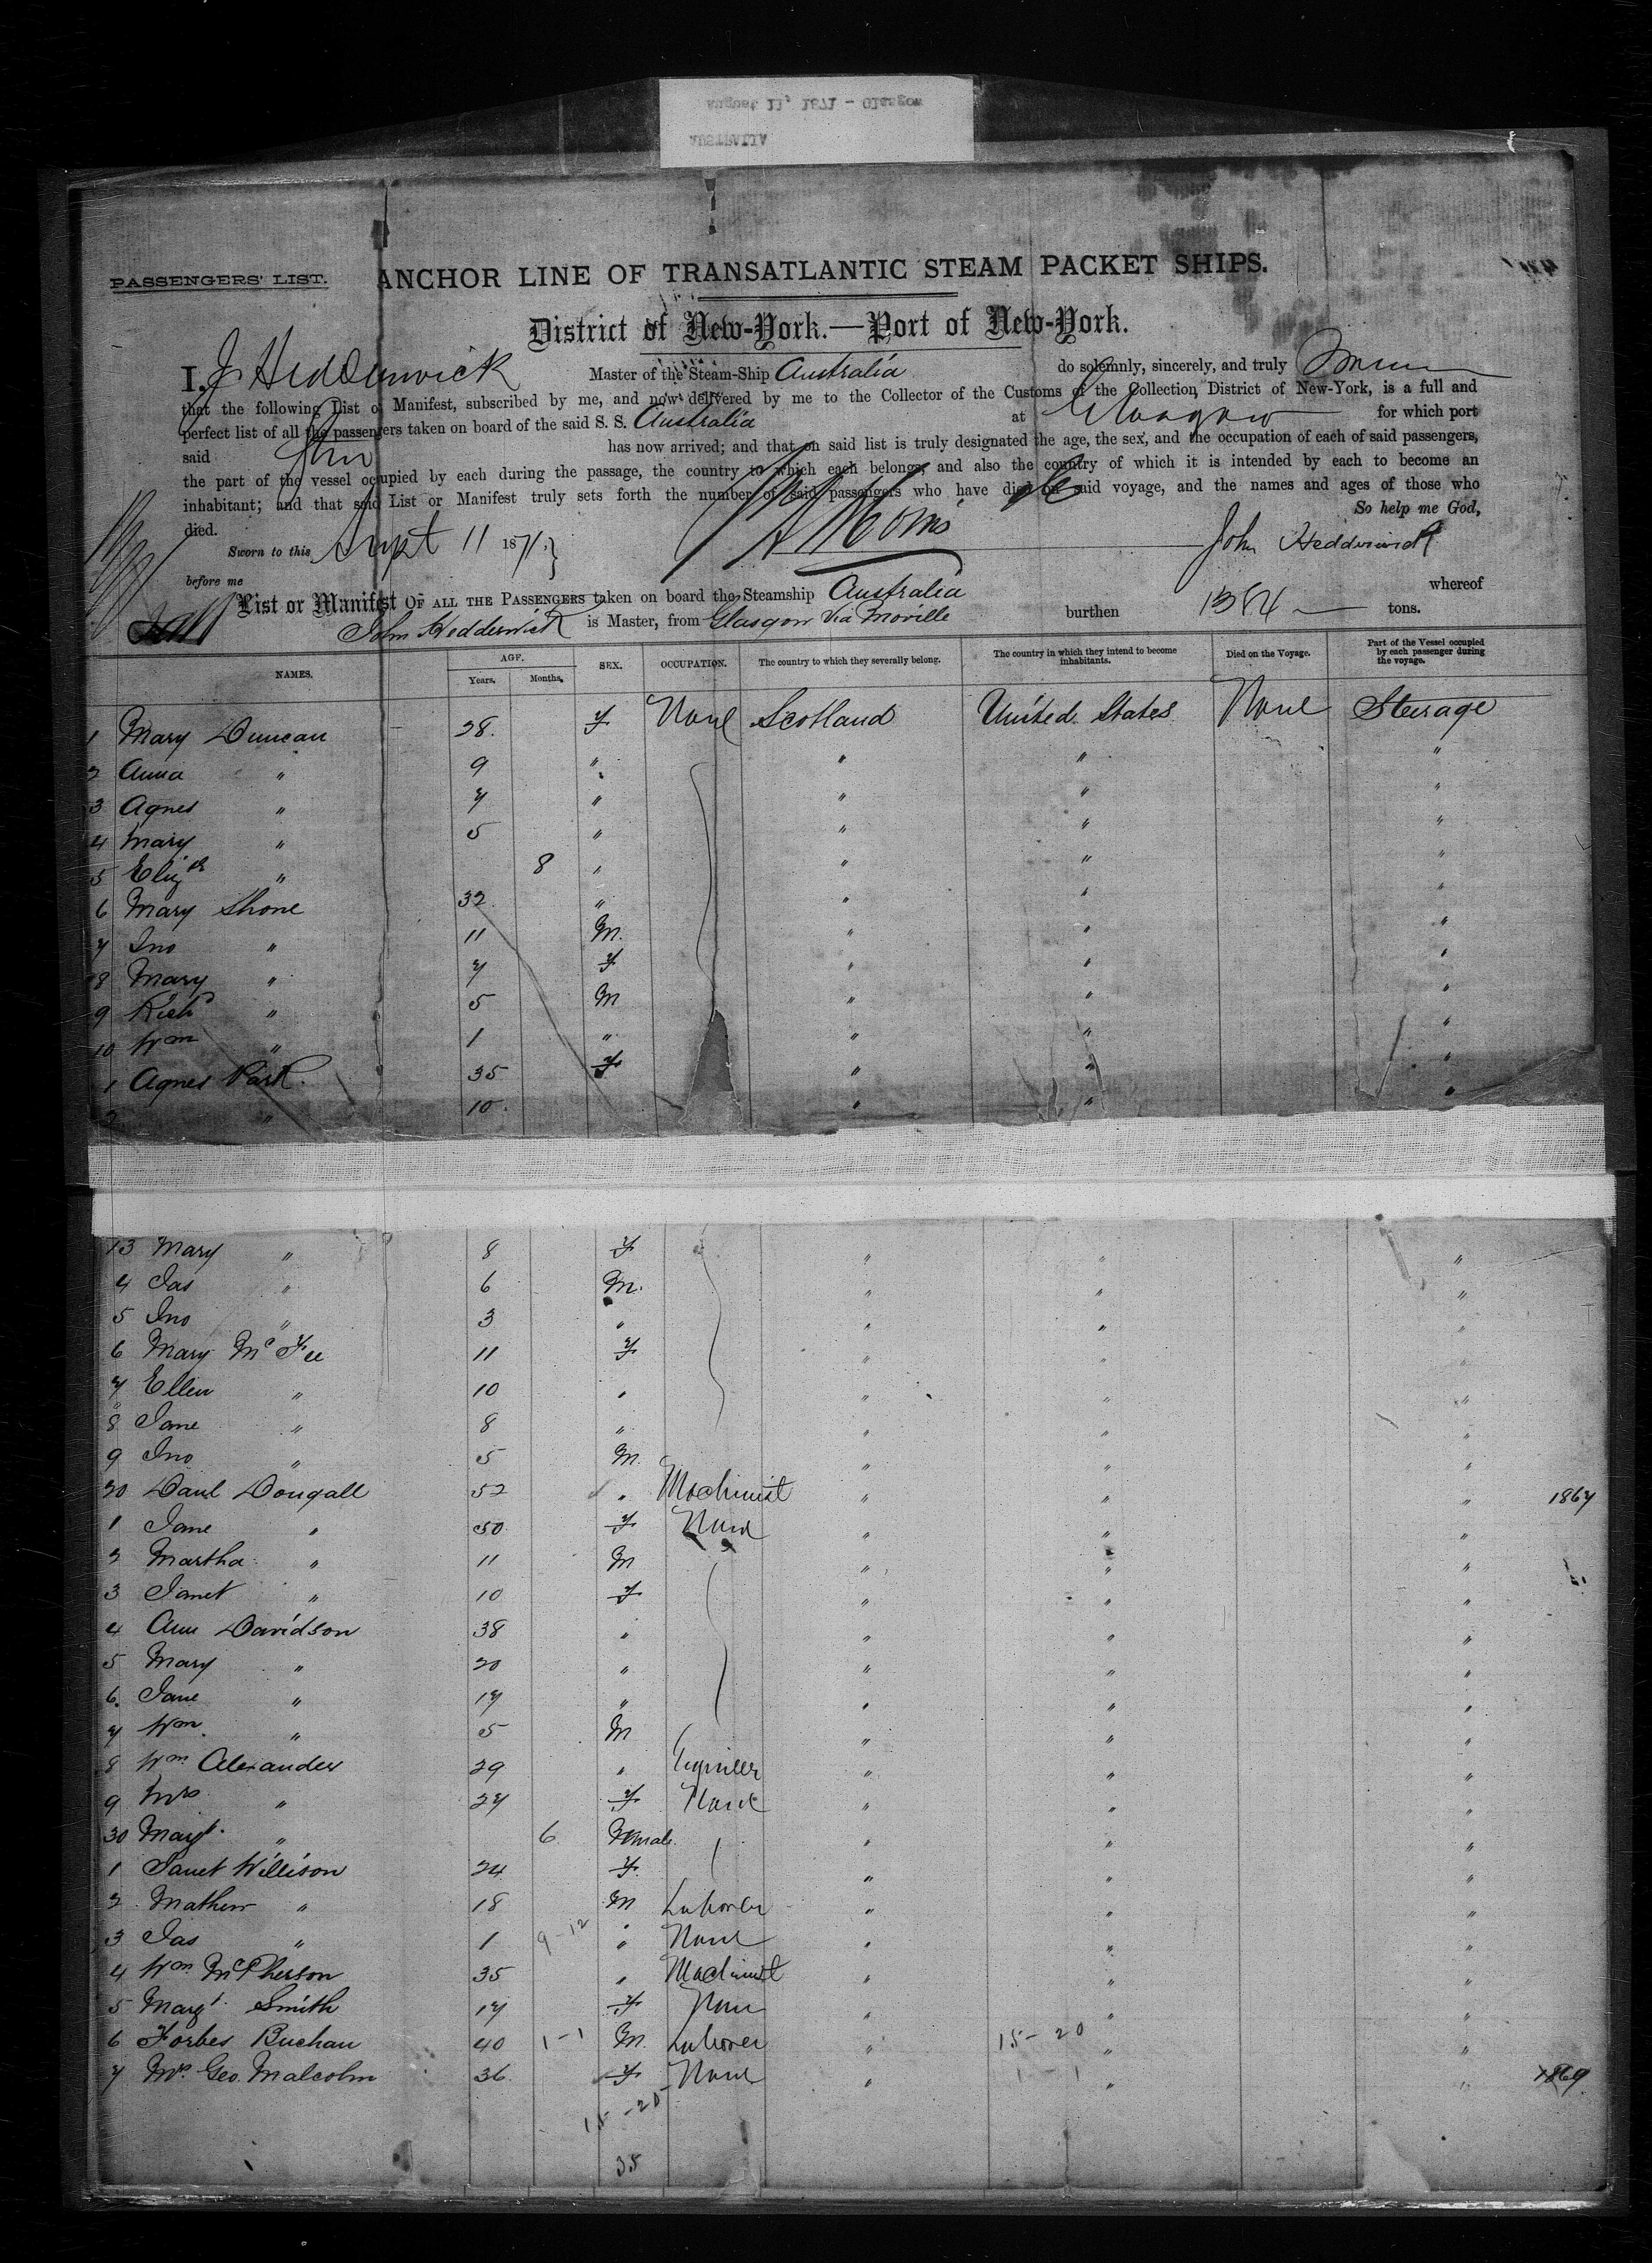 August 11, 1871 - Glasgow
AUSTRALIA
PASSENGERS' LIST.
ANCHOR LINE OF TRANSATLANTIC STEAM PACKET SHIPS.
District of New-York.—Port of New-York.
I, J Hedderwick Master of the Steam-Ship Australia do solemnly, sincerely, and truly
that the following List or Manifest, subscribed by me, and now delivered by me to the Collector of the Customs of the Collection District of New-York, is a full and
perfect list of all the passengers taken on board of the said S. S. Australia at Glasgow for which port
said has now arrived; and that on said list is truly designated the age, the sex, and the occupation of each of said passengers,
the part of the vessel occupied by each during the passage, the country to which each belongs, and also the country of which it is intended by each to become an
inhabitant; and that said List or Manifest truly sets forth the number of said passengers who have died on said voyage, and the names and ages of those who
died. So help me God,
Sworn to this Sept 11 1871. } John Hedderwick
before me
List or Manifest OF ALL THE PASSENGERS taken on board the Steamship Australia whereof
John Hedderwick is Master, from Glasgow via Moville burthen 1384 tons.
NAMES. AGE. Years. Months. SEX. OCCUPATION. The country to which they severally belong. The country in which they intend to become inhabitants. Died on the Voyage. Part of the Vessel occupied by each passenger during the voyage.
1 Mary Duncan 28. F None Scotland United States None Steerage
2 Anna " 9 " " " "
3 Agnes " 7 " " " "
4 Mary " 5 " " " "
5 Elizth " 8 " " " "
6 Mary Shone 32 " " " "
7 Jno " 11 M. " " "
8 Mary " 7 F " " "
9 Richd " 5 M " " "
10 Wm " 1 " " " "
1 Agnes Park. 35 F " " "
2 " 10. " " "
13 Mary " 8 F " " "
4 Jas " 6 M. " " "
5 Jno " 3 " " " "
6 Mary McFee 11 F " " "
7 Ellen " 10 " " " "
8 Jane " 8 " " " "
9 Jno " 5 M. " " "
20 Danl Dougall 52 " Machinist " " " 1867
1 Jane " 50 F None " " "
2 Martha " 11 M " " "
3 Janet " 10 F " " "
4 Ann Davidson 38 " " " "
5 Mary " 20 " " " "
6. Jane " 17 " " " "
7 Wm. " 5 M " " "
8 Wm Alexander 29 " Engineer " " "
9 Mrs " 27 F None " " "
30 Magt. " 6 Female " " "
1 Janet Willison 24 F. " " "
2 Mathew " 18 M Laborer " " "
3 Jas " 1 9-12 " None " " "
4 Wm McPherson 35 " Machinist " " "
5 Margt. Smith 17 F None " " "
6 Forbes Buchan 40 1-1 M. Laborer " 15-20 " "
7 Mrs. Geo. Malcolm 36 F None " 1-1 " " 1869
15-20
35